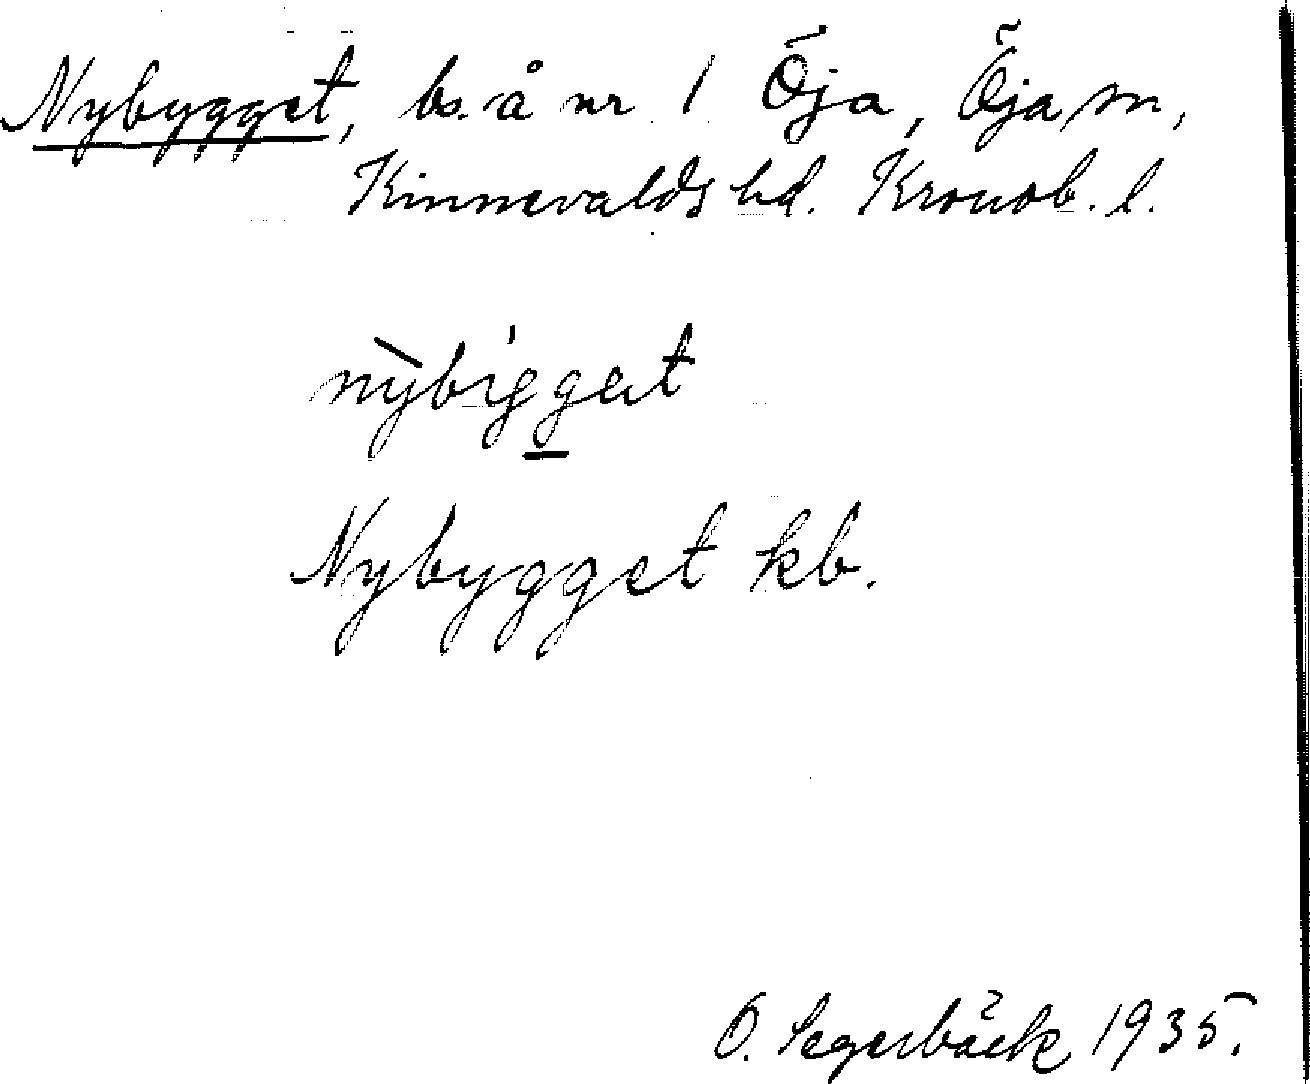 Nybygget, bs. å nr 1 Öja, Öja sn,
Kinnevalds hd. Kronob. l.
nỳbi̍gget
Nybygget kb.
O. Segerbäck 1935.